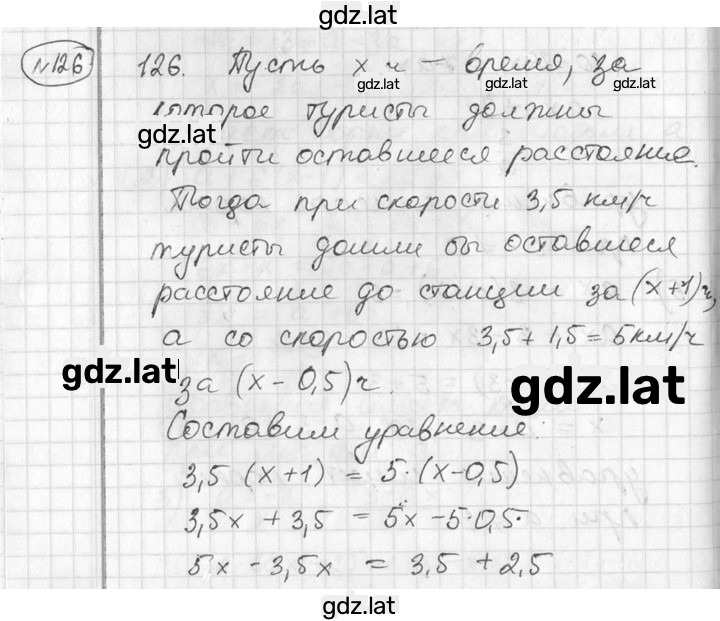 gdz.lat
№126
126. Пусть x ч – время, за
gdz.lat gdz.lat gdz.lat
которое туристы должны
gdz.lat
пройти оставшееся расстояние.
Тогда при скорости 3,5 км/ч
туристы дошли бы оставшееся
расстояние до станции за (x+1)ч,
а со скоростью 3,5+1,5=5км/ч
gdz.lat
за (x-0,5)ч.
gdz.lat
Составим уравнение:
3,5 (x+1) = 5·(x-0,5)
3,5x +3,5 = 5x -5·0,5.
5x -3,5x = 3,5 +2,5
gdz.lat